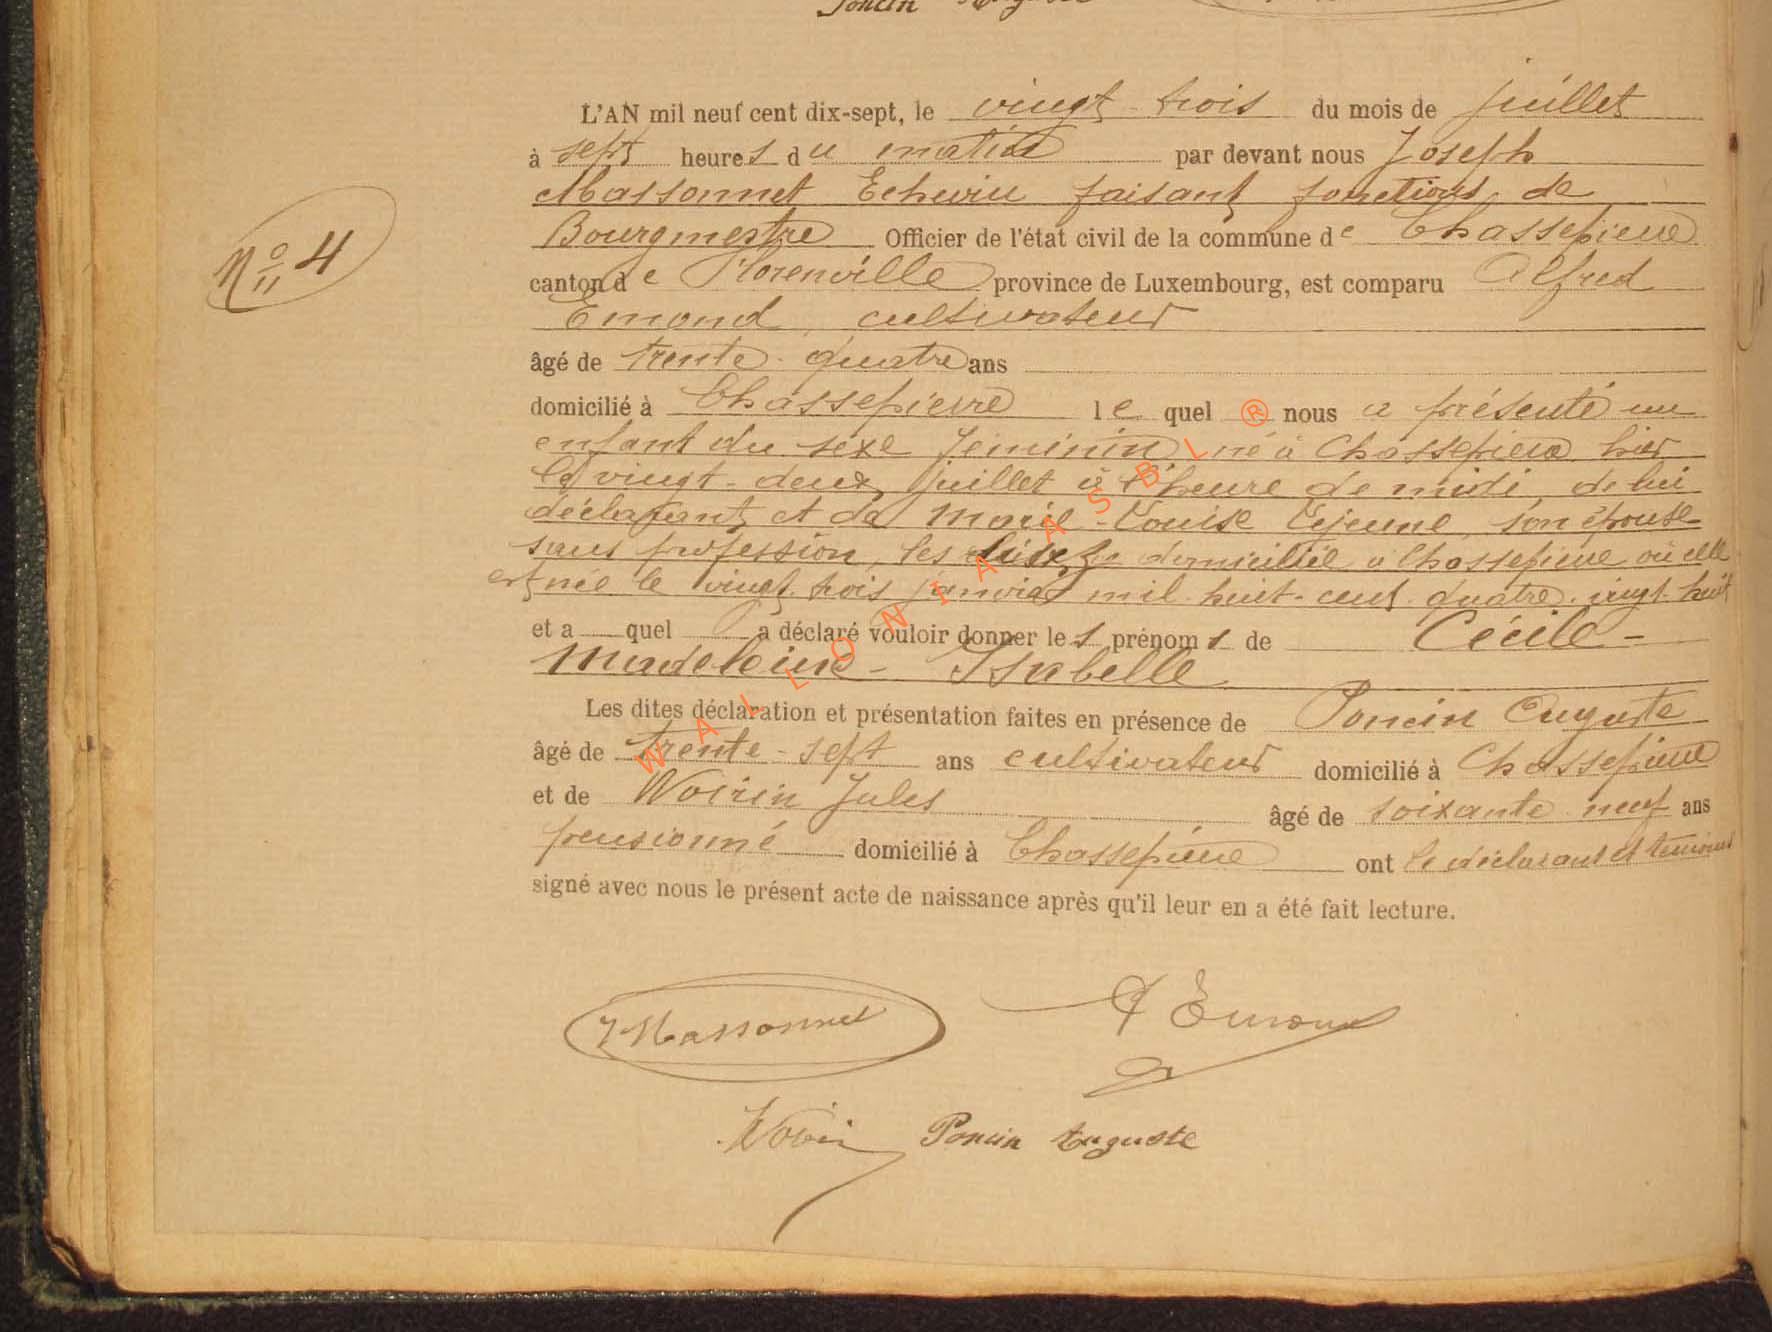 Poncin Auguste
L'AN mil neuf cent dix-sept, le vingt-trois du mois de juillet
à sept heures du matin par devant nous Joseph
Massonnet Echevin faisant fonctions de
Bourgmestre Officier de l'état civil de la commune de Chassepierre
N° 4
canton de Florenville province de Luxembourg, est comparu Alfred
Emond, cultivateur
âgé de trente-quatre ans
domicilié à Chassepierre lequel ® nous a présenté un
enfant du sexe féminin né à Chassepierre hier
le vingt-deux juillet à l'heure de midi, de lui
déclarant et de Marie-Louise Lejeune, son épouse
sans profession, les domicilié à Chassepierre où elle
est née le vingt-trois janvier mil huit-cent quatre-vingt-huit
et a quel a déclaré vouloir donner les prénoms de Cécile-
Madeleine-Isabelle
Les dites déclaration et présentation faites en présence de Poncin Auguste
âgé de trente-sept ans cultivateur domicilié à Chassepierre
et de Woirin Jules âgé de soixante neuf ans
pensionné domicilié à Chassepierre ont le déclarant et témoins
signé avec nous le présent acte de naissance après qu'il leur en a été fait lecture.
J Massonnet A Emond
Woirin Poncin Auguste
WALLONIA ASBL